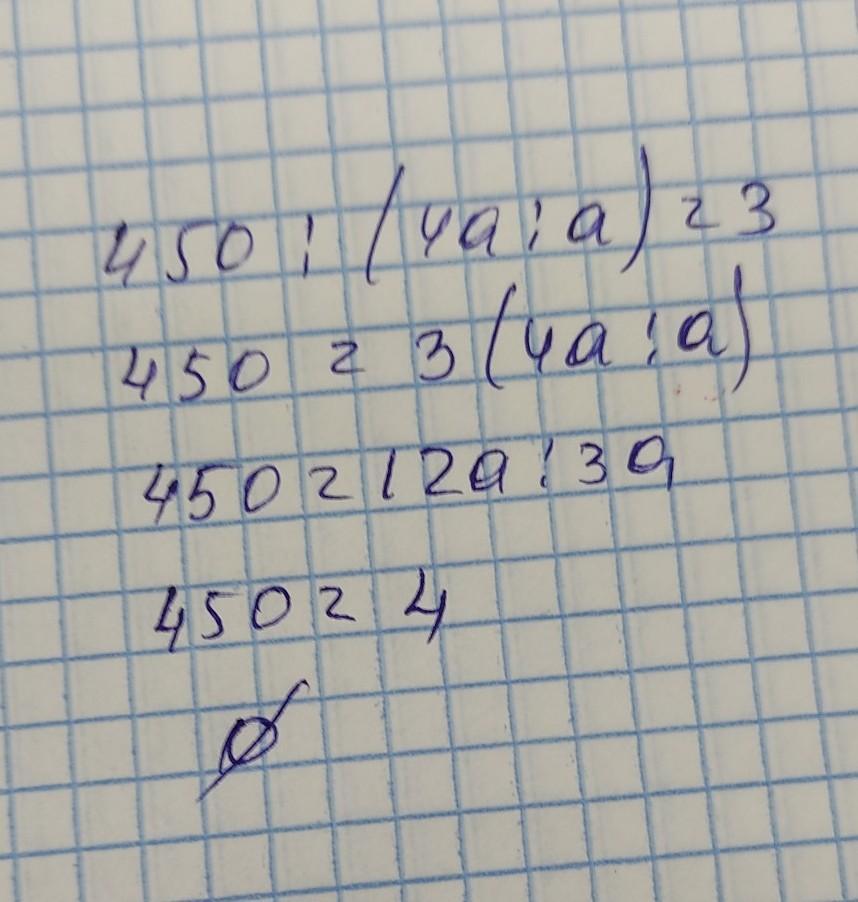 450 : (4a : a) = 3
450 = 3(4a : a)
450 = 12a : 3a
450 = 4
∅